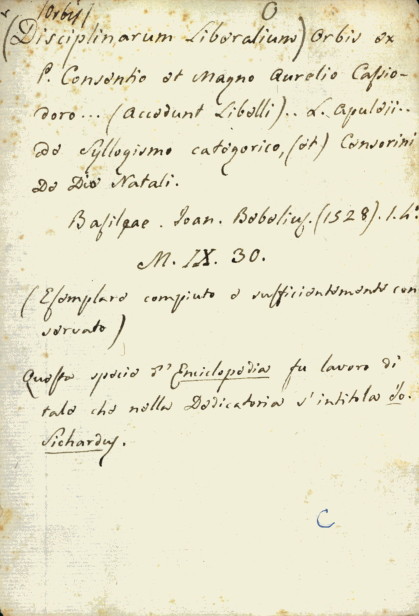 (Orbis) O
(Disciplinarum Liberalium) Orbis ex
P. Consentio et Magno Aurelio Cassio-
doro... (Accedunt Libelli).. L. Apuleii..
de Syllogismo categorico, (et) Censorini
De Die Natali.
Basileae. Joan. Bebelius. (1528). 1. 4°
M. IX. 30.
(Esemplare compiuto e sufficientemente con
servato)
Questa specie d'Enciclopedia fu lavoro di
tale che nella Dedicatoria s'intitola Jo.
Sichardus.
C